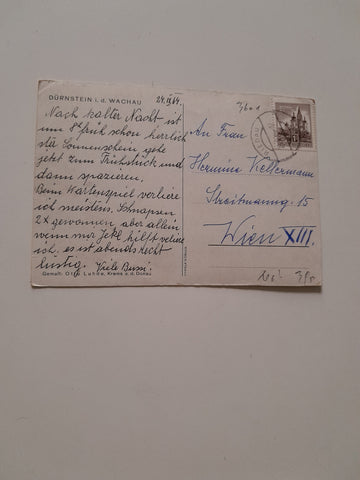 DÜRNSTEIN i. d. WACHAU 24. IX 64.
Nach kalter Nacht ist
um 8h früh schon herrlich
ster Sonnenschein gehe
jetzt zum Frühstück und
dann spazieren.
Beim Kartenspiel verliere
ich meistens. Schnapsen
2x gewonnen aber allein
wenn mir hilft verliere
ich, es ist abends recht
lustig. Viele Bussi.
Gemalt: Otto Krems a. d. Donau
An Frau
Hermine Kellermann
Streitmanng. 15
Wien XIII.